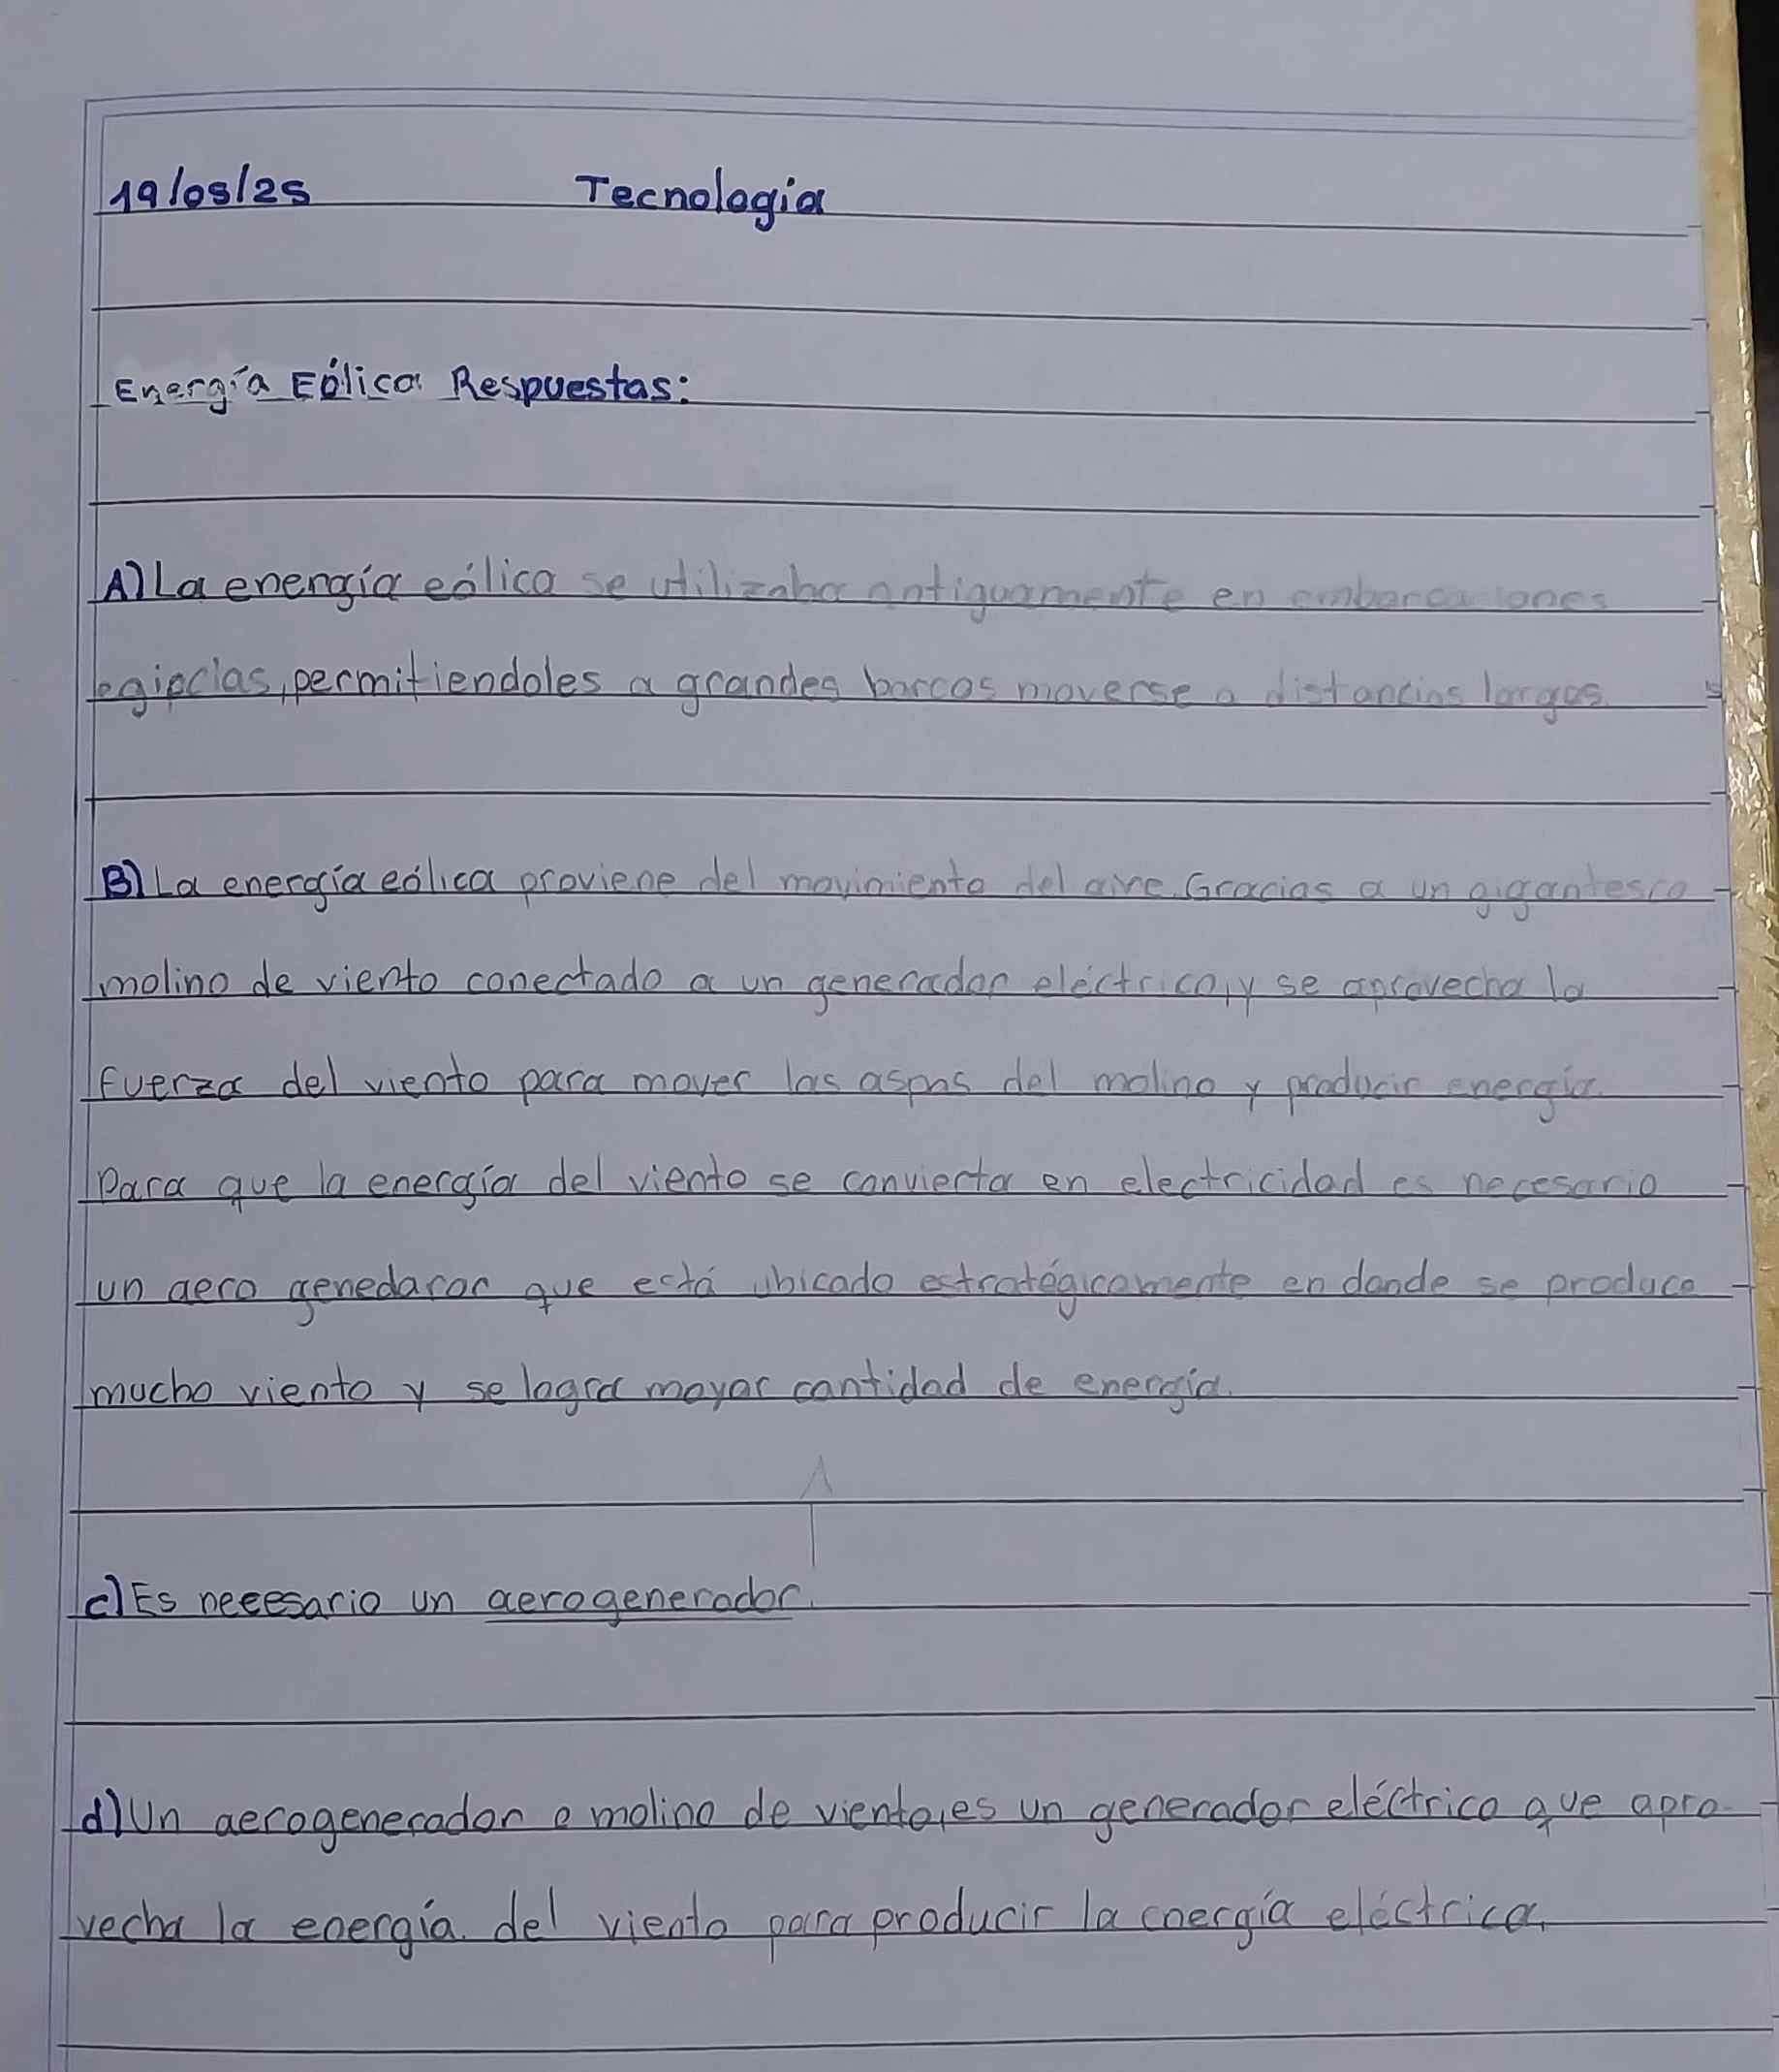 19/05/25 Tecnologia
Energía Eólica Respuestas:
A) La energía eólica se utilizaba antiguamente en embarcaciones
egipcias, permitiendoles a grandes barcos moverse a distancias largas
B) La energía eólica proviene del movimiento del aire. Gracias a un gigantesco
molino de viento conectado a un generador eléctrico, y se aprovecha la
fuerza del viento para mover las aspas del molino y producir energía.
Para que la energía del viento se convierta en electricidad es necesario
un aero genedaror que está ubicado estratégicamente en donde se produce
mucho viento y se logra mayor cantidad de energía.
c) Es necesario un aerogenerador.
d) Un aerogenerador o molino de viento, es un generador eléctrico que apro-
vecha la energía del viento para producir la energía eléctrica.